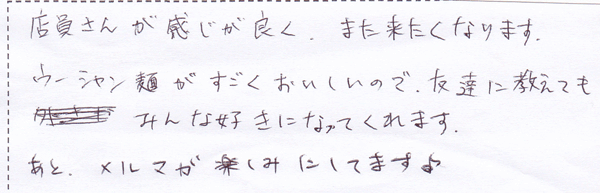 店員さんが感じが良く、また来たくなります。
ウーシャン麺がすごくおいしいので、友達に教えても
みんな好きになってくれます。
あと、メルマガ楽しみにしてます♪